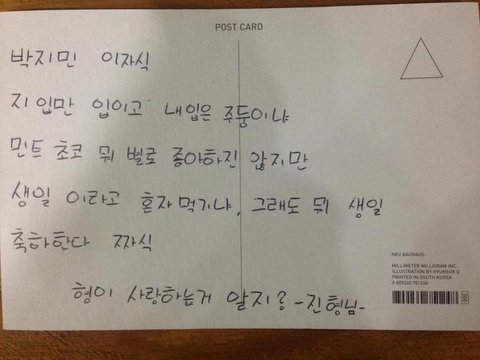 POST CARD
박지민 이자식
지 입만 입이고 내입은 주둥이냐
민트 초코 뭐 별로 좋아하진 않지만
생일 이라고 혼자먹기냐, 그래도 뭐 생일
축하한다 짜식
형이 사랑하는거 알지? -진형님-
NEU BAUHAUS
MILLIMETER MILLIGRAM INC.
ILLUSTRATION BY HYUNSUK
PRINTED IN SOUTH KOREA